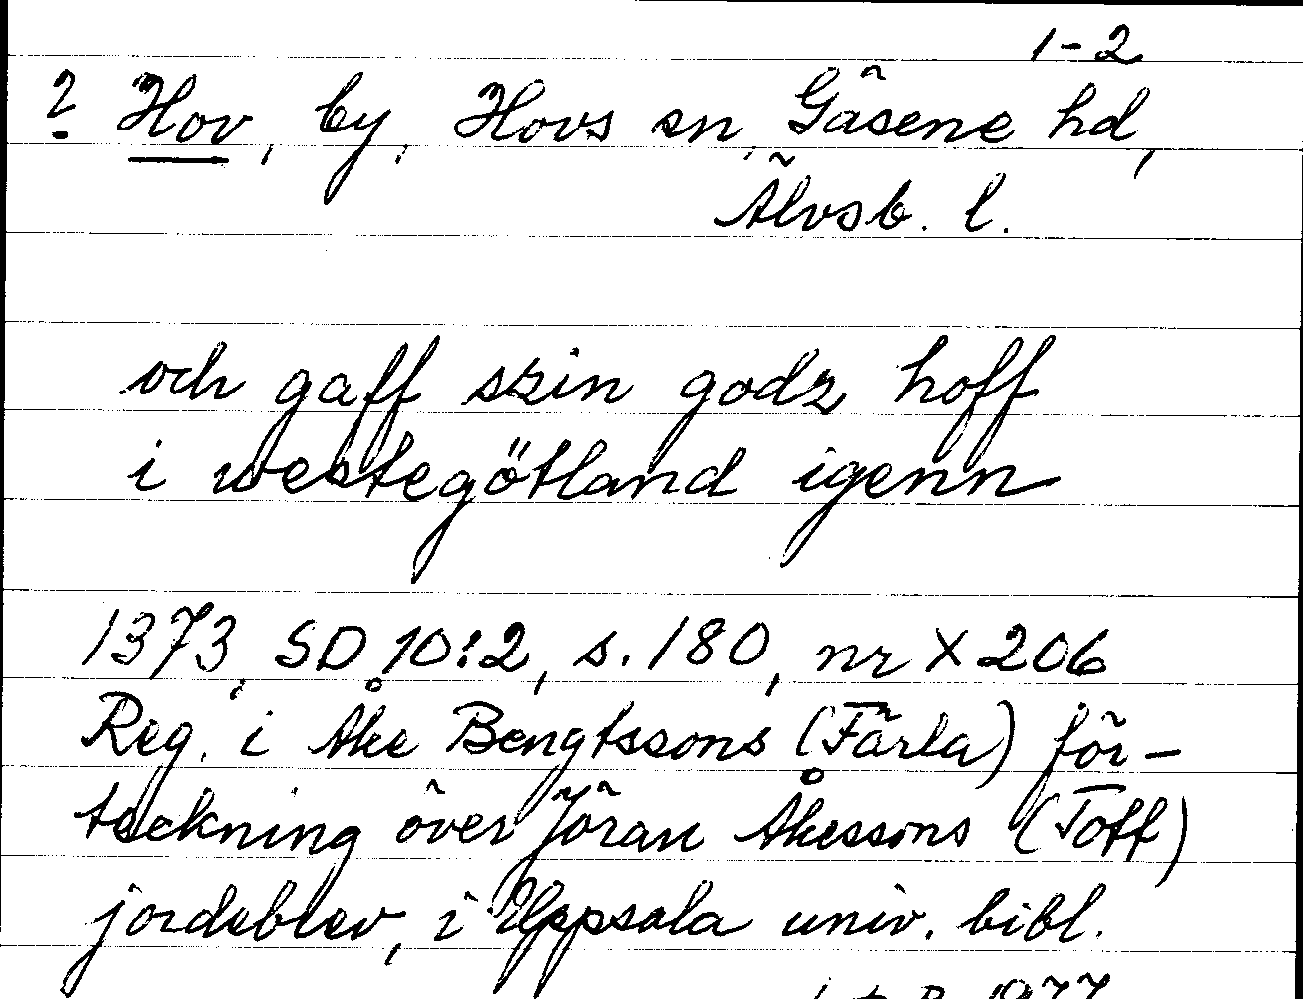 1-2
? Hov, by, Hovs sn, Gäsene hd,
Älvsb. l.
och gaff szin godz hoff
i westegötland igenn
1373, SD 10:2, s. 180, nr X 206
Reg. i Åke Bengtssons (Färla) för-
teckning över Jöran Åkessons (Tott)
jordebrev, i Uppsala univ. bibl.
1977